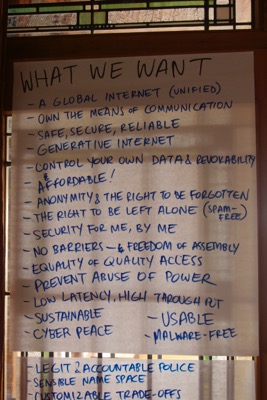 WHAT WE WANT
- A GLOBAL INTERNET (UNIFIED)
- OWN THE MEANS OF COMMUNICATION
- SAFE, SECURE, RELIABLE
- GENERATIVE INTERNET
- CONTROL YOUR OWN DATA & REVOKABILITY
- AFFORDABLE!
- ANONYMITY & THE RIGHT TO BE FORGOTTEN
- THE RIGHT TO BE LEFT ALONE (SPAM-FREE)
- SECURITY FOR ME, BY ME
- NO BARRIERS - FREEDOM OF ASSEMBLY
- EQUALITY OF QUALITY ACCESS
- PREVENT ABUSE OF POWER
- LOW LATENCY, HIGH THROUGH PUT
- SUSTAINABLE - USABLE
- CYBER PEACE - MALWARE-FREE
- LEGIT & ACCOUNTABLE POLICE
- SENSIBLE NAME SPACE
- CUSTOMIZABLE TRADE-OFFS